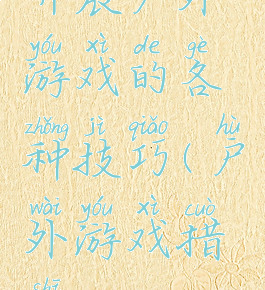 开展户外
yóu xì de gè
游戏的各
zhǒng jì qiǎo hù
种技巧(户
wài yóu xì cuò
外游戏措
shī